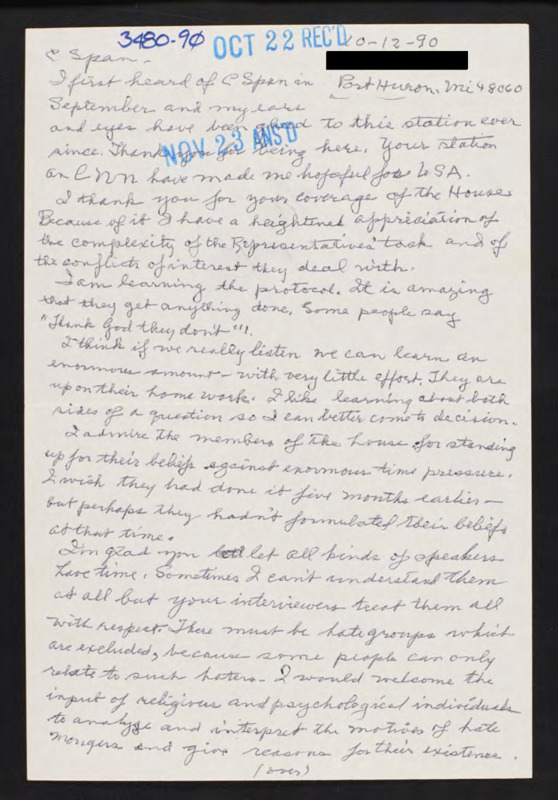 3480-90
OCT 22 REC'D
10-12-90
C Span -
I first heard of C Span in
Port Huron, Mi 48060
September and my ears
and eyes have been glued to this station ever
since. Thank you for being here. Your station
an CNN have made me hopeful for USA.
NOV 23 ANS'D
I thank you for your coverage of the House
Because of it I have a heightened appriciation of
the complexity of the Representatives' task and of
the conflicts of interest they deal with.
I am learning the protocol. It is amazing
that they get anything done. Some people say
"Thank God they don't"!.
I think if we really listen we can learn an
enormous amount - with very little effort. They are
up on their home work. I like learning about both
sides of a question so I can better come to decision.
I admire the members of the house for standing
up for their beliefs against enormous time pressure.
I wish they had done it five months earlier -
but perhaps they hadn't formulated their beliefs
at that time.
I'm glad you let all kinds of speakers
have time. Sometimes I can't understand them
at all but your interviewers treat them all
with respect. There must be hate groups which
are excluded, because some people can only
relate to such haters - I would welcome the
input of religious and psychological individuals
to analyze and interpret the motives of hate
mongers and give reasons for their existence.
(over)